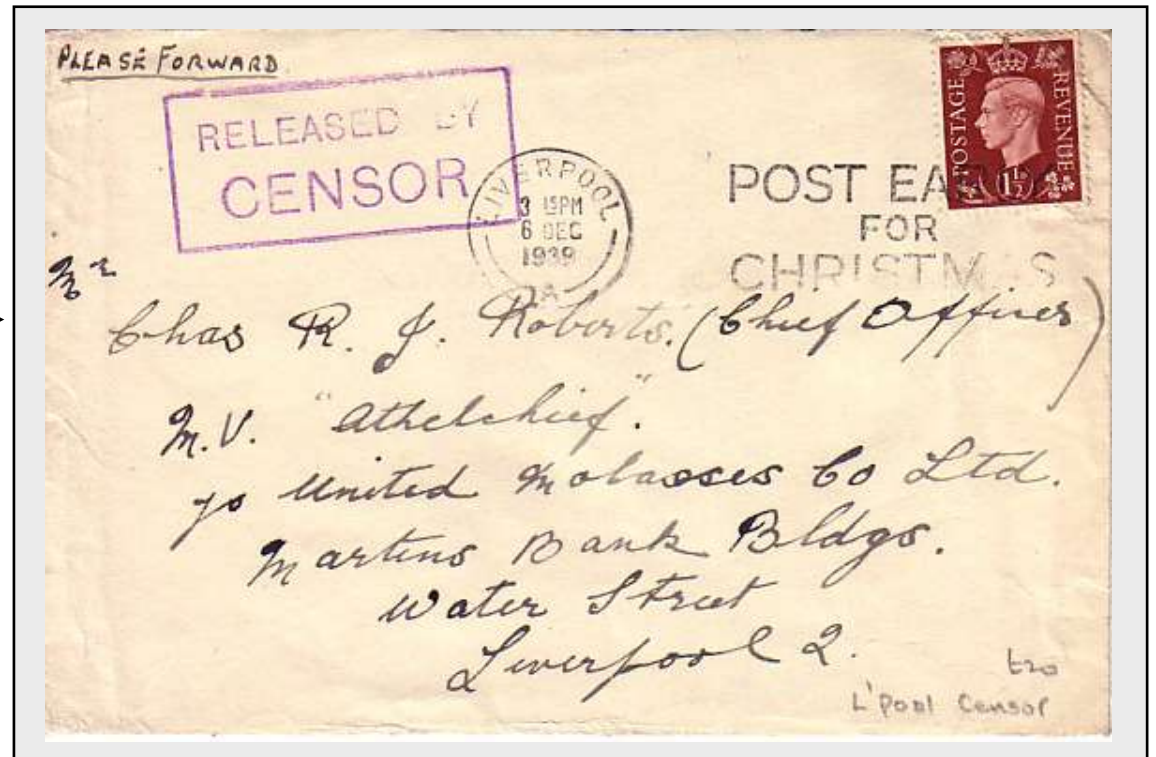 PLEASE FORWARD
RELEASED BY
CENSOR
LIVERPOOL
3 15PM
6 DEC
1939
A
POST EA
FOR
CHRISTMAS
POSTAGE
REVENUE
1½
Mr
Chas R. J. Roberts. (Chief Officer)
M.V. "Athelchief".
c/o United Molasses Co Ltd.
Martins Bank Bldgs.
Water Street
Liverpool 2.
£20
L'pool Censor